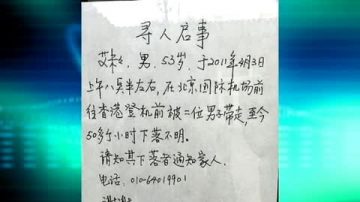 寻人启事
艾未未，男，53岁，于2011年4月3日
上午八点半左右，在北京国际机场前
往香港登机前被二位男子带走，至今
50多个小时下落不明。
请知其下落者通知家人.
电话：010-64019901
谢谢！